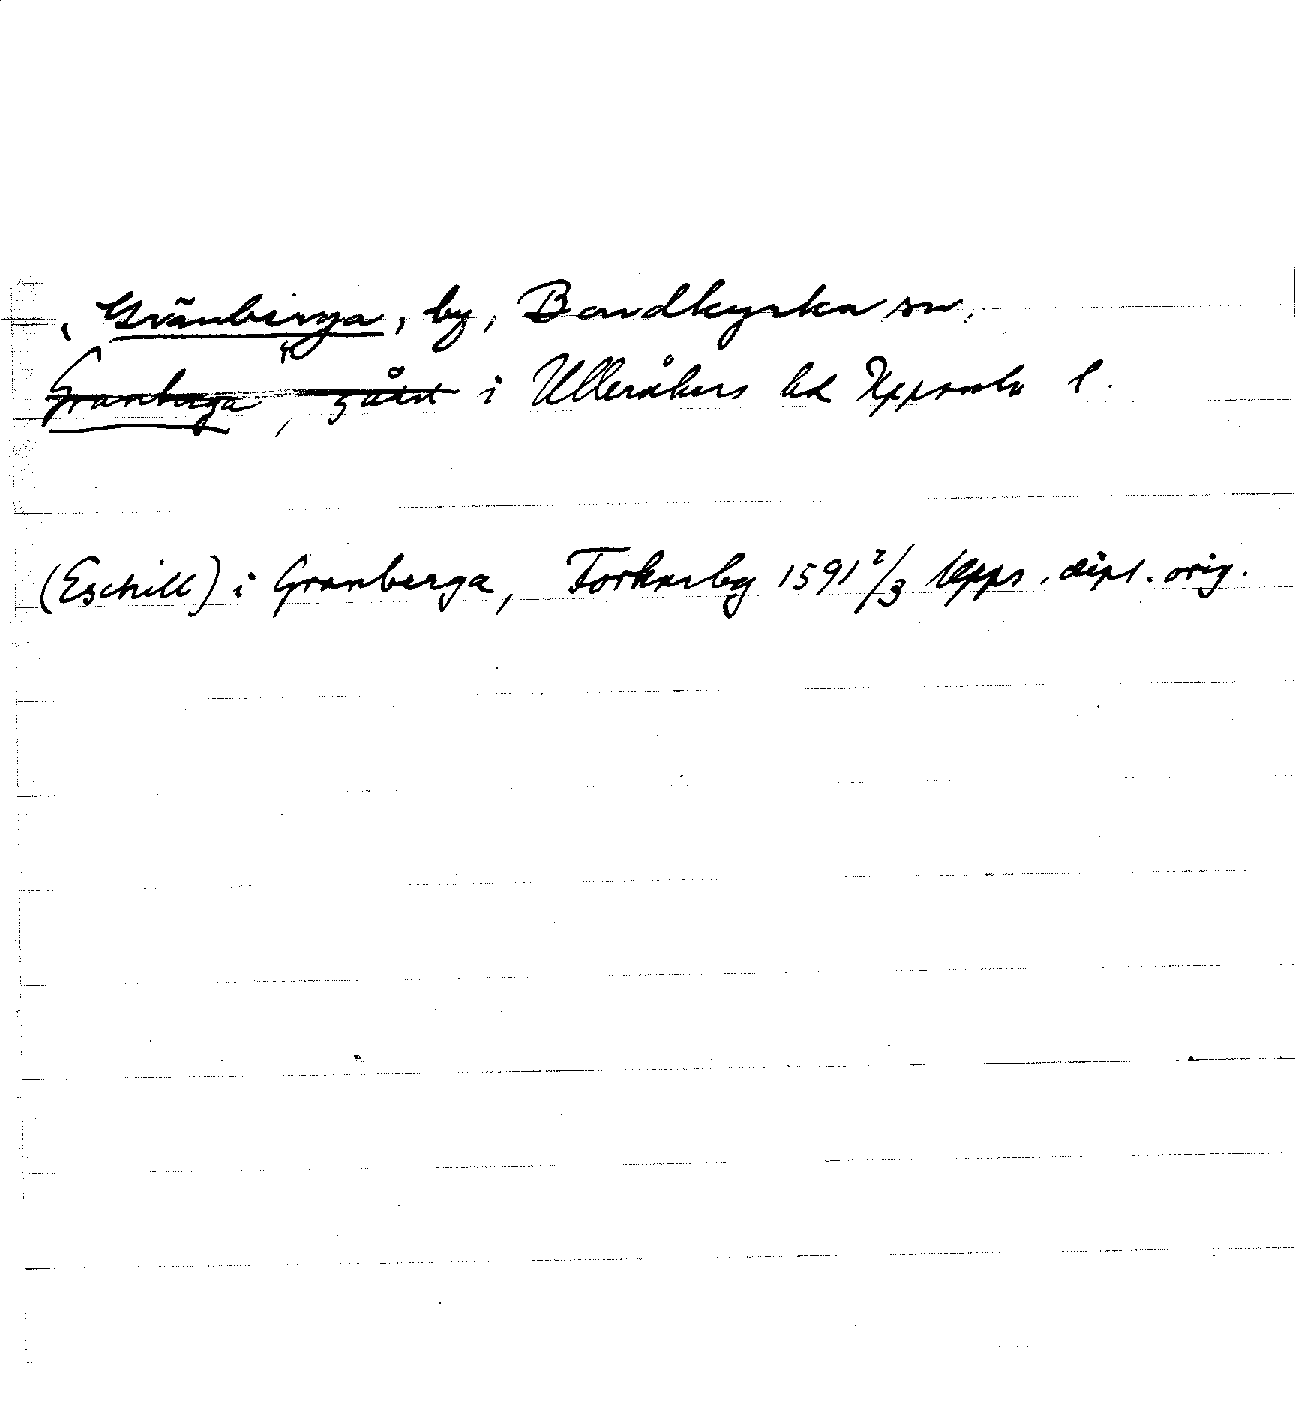 Gränberga, by, Bondkyrka sn,
Granberga, gård i Ulleråkers hd Uppsala l.
(Eschill) i Granberga, Forkarby 1591 2/3 Upps. dipl. orig.